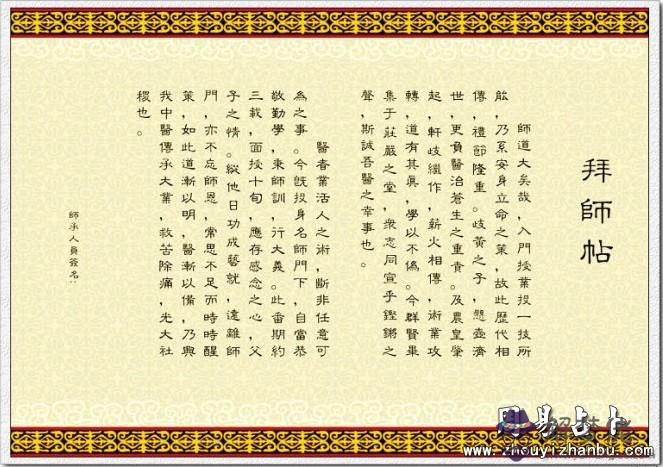 拜師帖
師道大矣哉，入門授業投一技所
能，乃系安身立命之策，故此歷代相
傳，禮節隆重。歧黃之子，懸壺濟
世，更負醫治蒼生之重責。及農皇肇
起，軒歧繼作，薪火相傳，術業攻
轉，道有其真，學以不僞。今群賢畢
集于莊嚴之堂，衆志同宣乎鏗鏘之
聲，斯誠吾醫之幸事也。
醫者業活人之術，斷非任意可
爲之事。今既投身名師門下，自當恭
敬勤學，秉師訓，行大義。此番期約
三載，面授十旬，應存感念之心，父
子之情。縱他日功成藝就，遠離師
門，亦不忘師恩，常思不足而時時醒
策，如此道漸以明，醫漸以備，乃興
我中醫傳承大業，救苦除痛，光大社
稷也。
師承人員簽名：
周易占卜
www.zhouyizhanbu.com